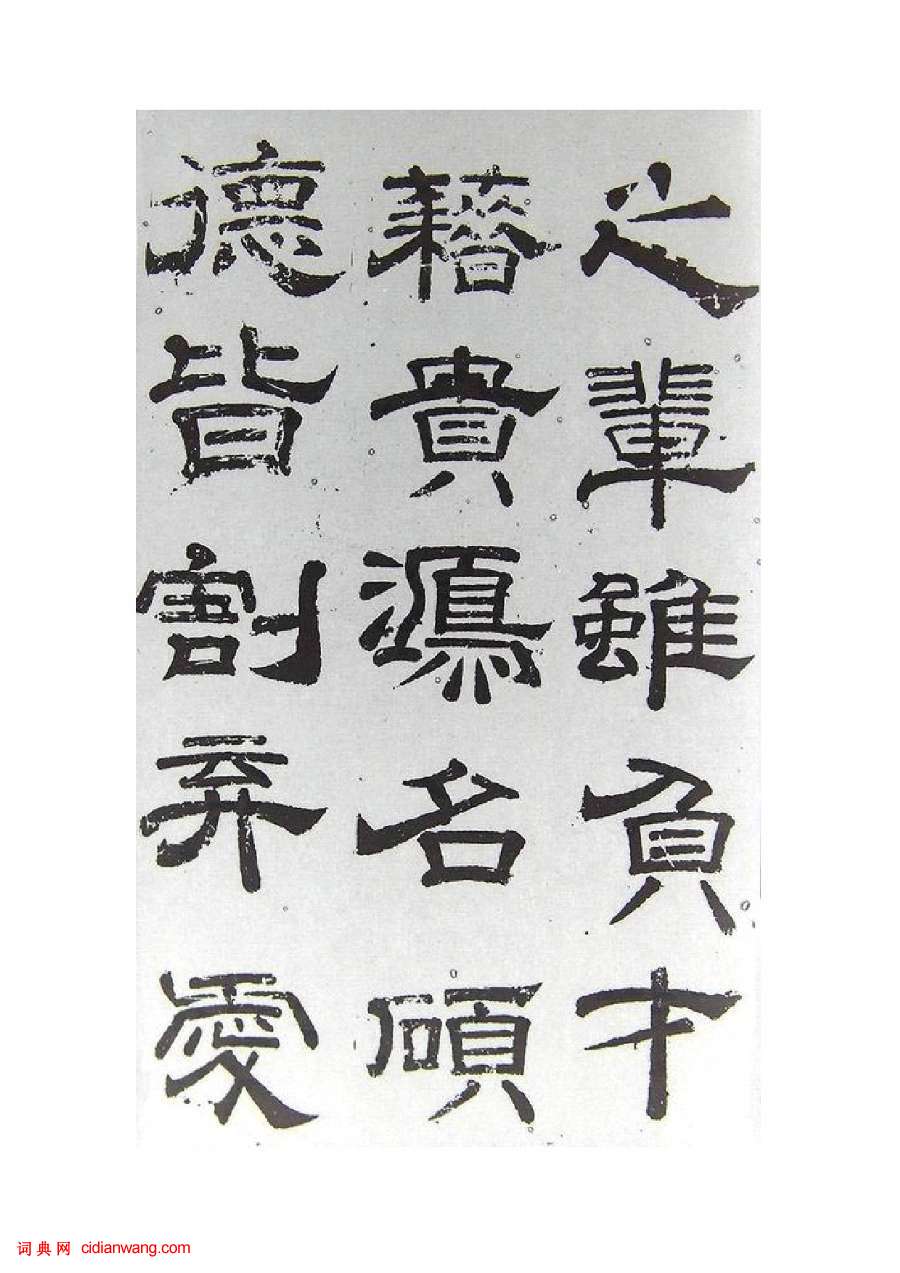 之輩雖負才
藉貴鴻名碩
德皆割弃愛
词典网 cidianwang.com